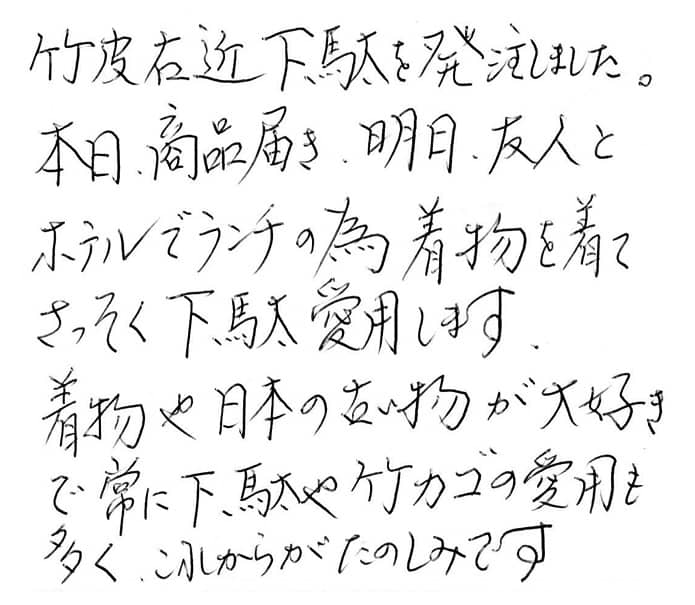 竹皮右近下駄を発注しました。
本日、商品届き、明日、友人と
ホテルでランチの為着物を着て
さっそく下駄愛用します、
着物や日本の古い物が大好き
で常に下駄や竹カゴの愛用も
多く、これからがたのしみです